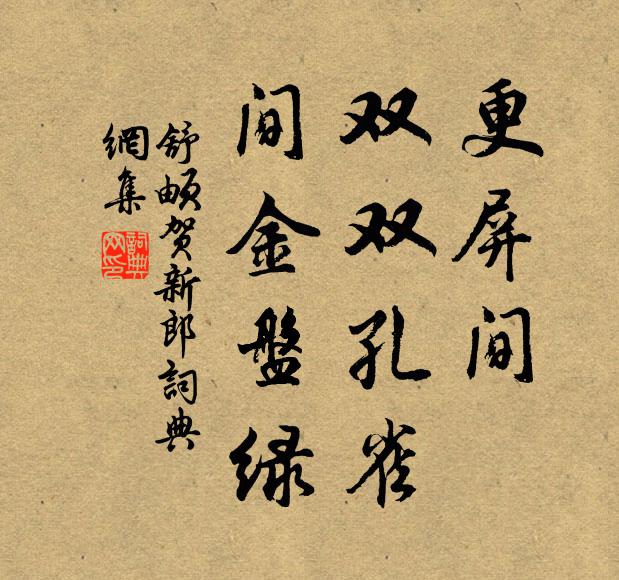 更屏间
双双孔雀
间金盤绿
舒頔贺新郎詞典
網集
詞典
网印